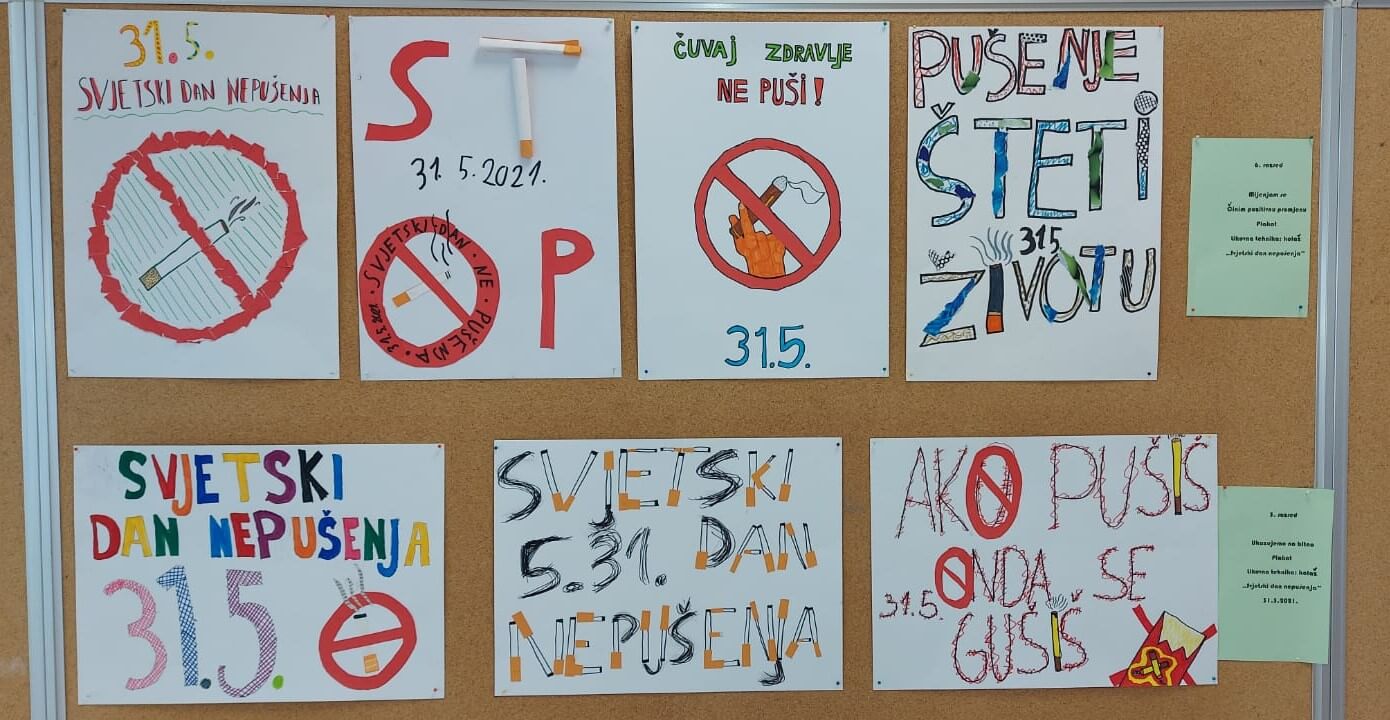 31.5.
SVJETSKI DAN NEPUŠENJA
STOP
31.5.2021.
• SVJETSKI DAN • NE • PUŠENJA • 31.5.2021
ČUVAJ ZDRAVLJE
NE PUŠI!
31.5.
PUŠENJE
ŠTETI
315
ŽIVOTU
6. razred
Mijenjam se
Činim pozitivnu promjenu
Plakat
Likovna tehnika: kolaž
„Svjetski dan nepušenja“
SVJETSKI
DAN NEPUŠENJA
31.5.
SVJETSKI
5.31. DAN
NEPUŠENJA
AKO PUŠIŠ
ONDA SE
31.5.
GUŠIŠ
5. razred
Ukazujemo na bitno
Plakat
Likovna tehnika: kolaž
„Svjetski dan nepušenja“
31.5.2021.